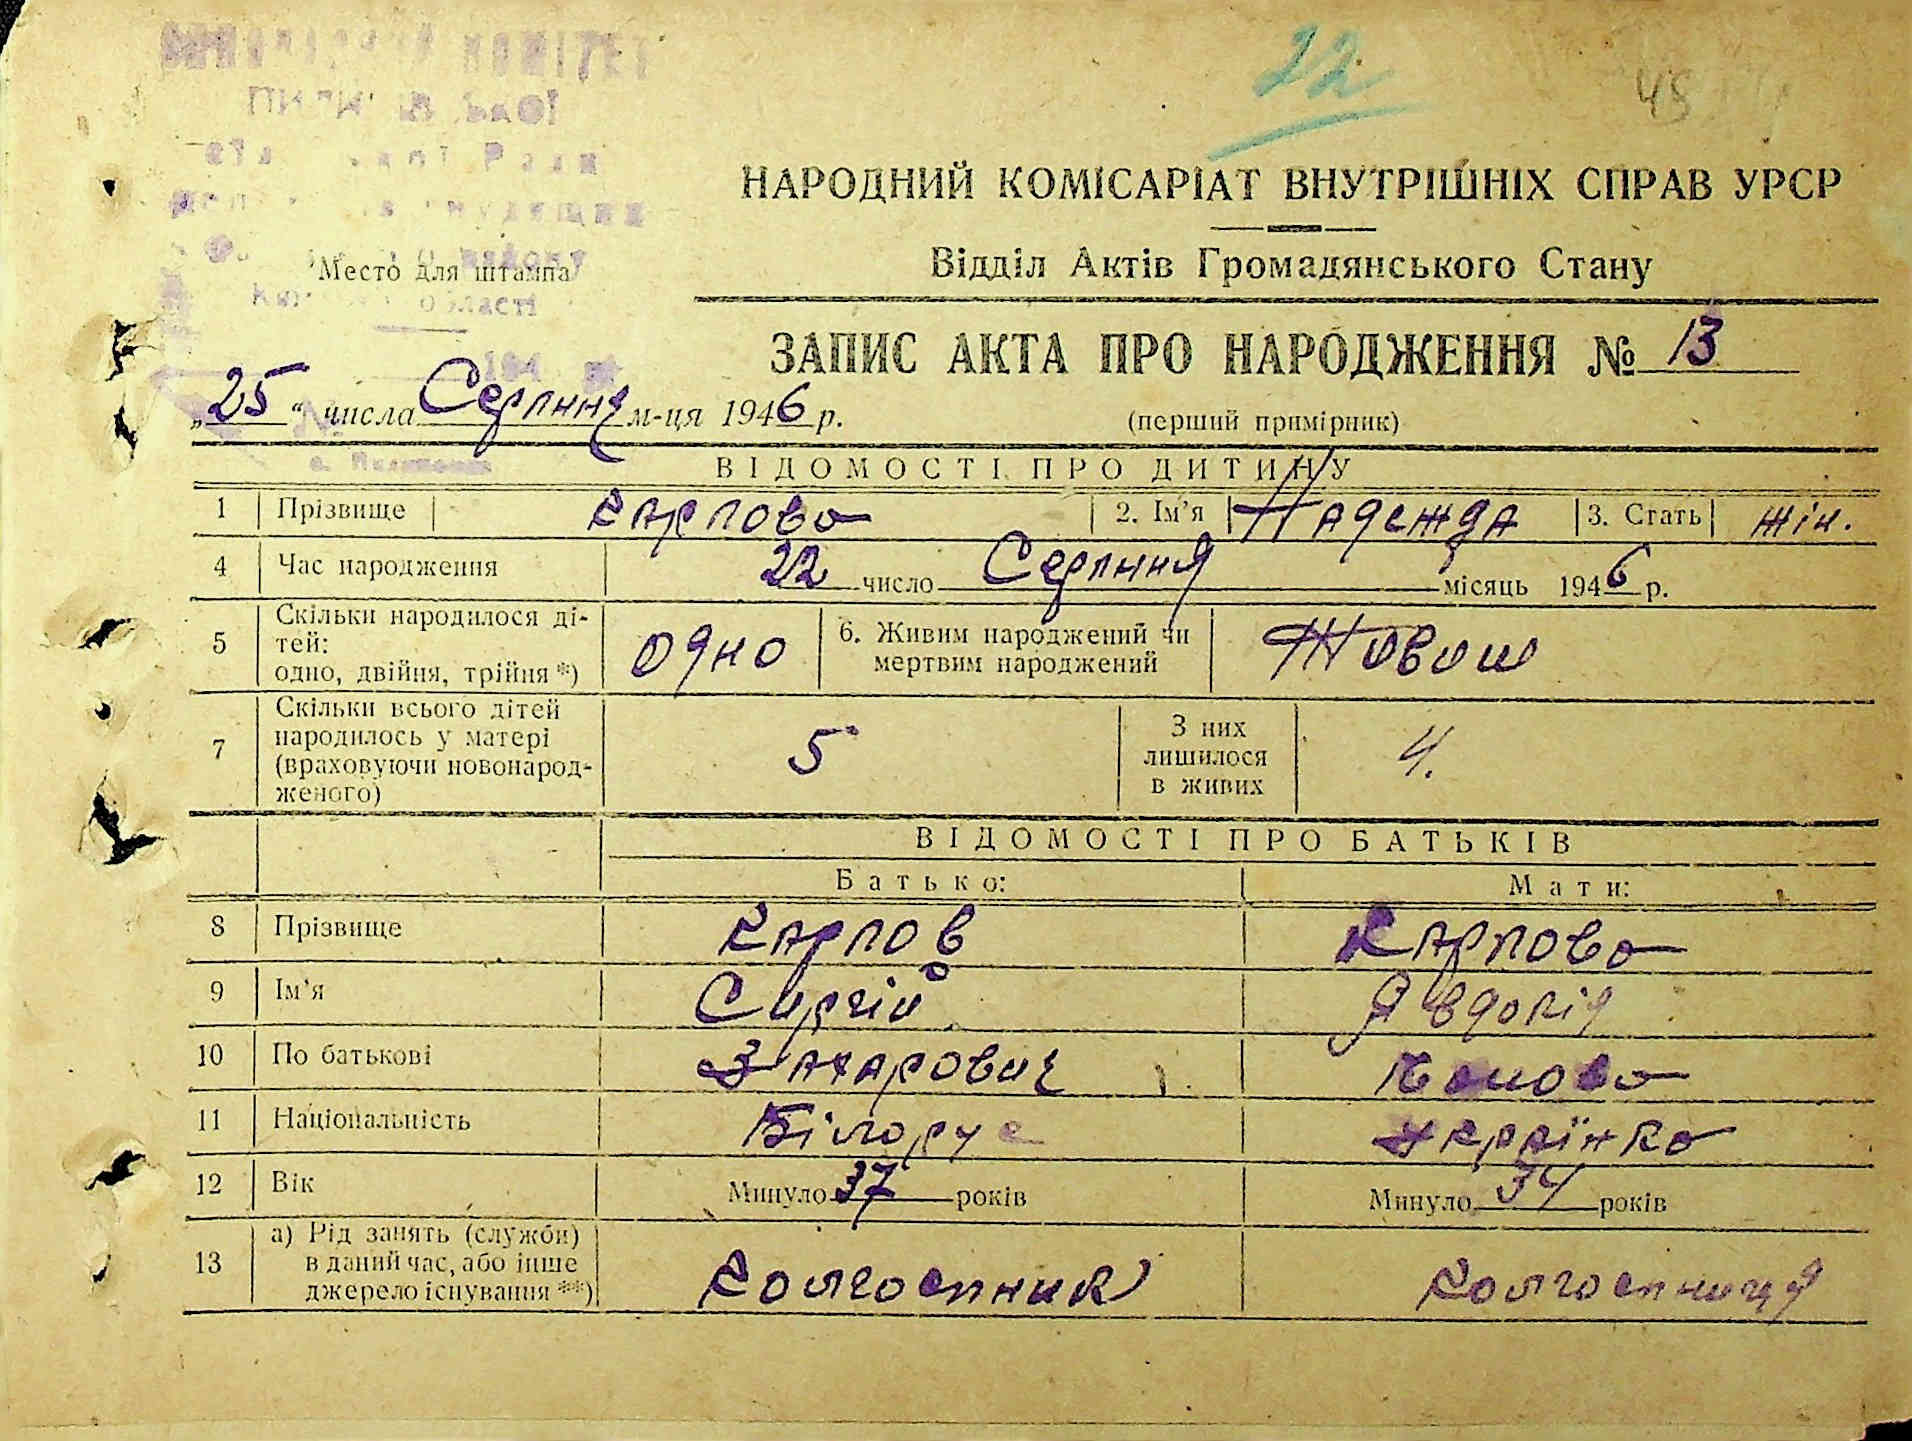 22
45
КОМІТЕТ
НАРОДНИЙ КОМІСАРІАТ ВНУТРІШНІХ СПРАВ УРСР
Відділ Актів Громадянського Стану
Место для штампа
області
ЗАПИС АКТА ПРО НАРОДЖЕННЯ № 13
„25" числа Серпння м-ця 1946 р.
(перший примірник)
ВІДОМОСТІ ПРО ДИТИНУ
1 Прізвище Карпова 2. Ім'я Надежда 3. Стать жін.
4 Час народження 22 число Серпння місяць 1946 р.
5 Скільки народилося дітей: одно, двійня, трійня *) одно 6. Живим народжений чи мертвим народжений
7 Скільки всього дітей народилось у матері (враховуючи новонародженого) 5 З них лишилося в живих 4.
ВІДОМОСТІ ПРО БАТЬКІВ
Батько: Мати:
8 Прізвище Карпов Карпова
9 Ім'я Сиргій Явдокія
10 По батькові Захарович
11 Національність Білорус Українка
12 Вік Минуло 37 років Минуло 34 років
13 а) Рід занять (служби) в даний час, або інше джерело існування **) Колгоспник Колгоспниця